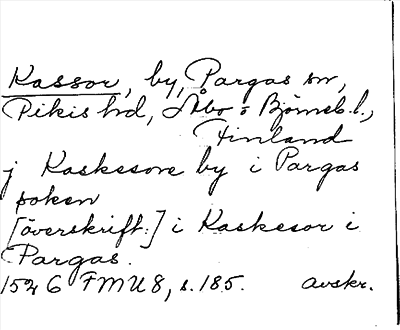 Kassor, by, Pargas sn,
Pikis hd, Åbo o Björneb. l.,
Finland
j Kaskesore by i Pargas
soken
[överskrift:] i Kaskesor i
Pargas.
1526 FMU 8, s. 185. avskr.